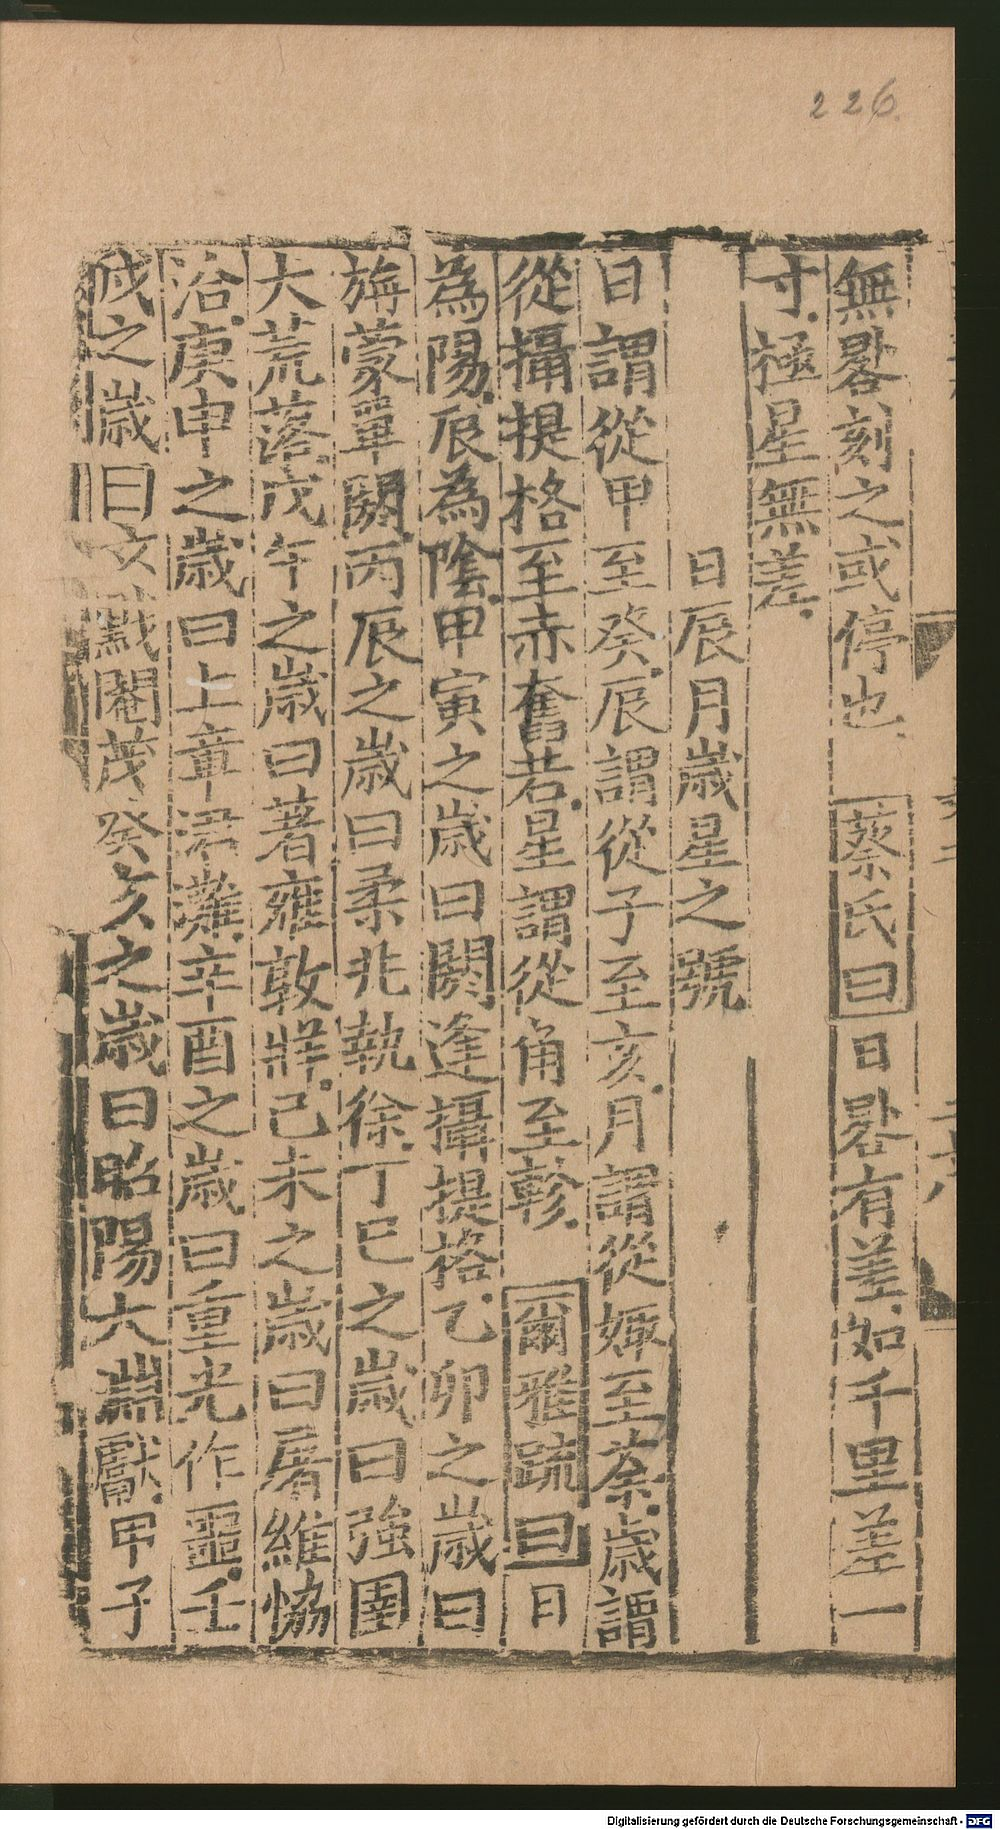 226
無晷刻之或停也蔡氏曰日晷有差如千里差一
寸極星無差
日辰月歲星之號
日謂從甲至癸辰謂從子至亥月謂從陬至荼歲謂
從攝提格至赤奮若星謂從角至軫爾雅疏曰日
為陽辰為陰甲寅之歲曰閼逢攝提格乙卯之歲曰
旃蒙單閼丙辰之歲曰柔兆執徐丁巳之歲曰強圉
大荒落戊午之歲曰著雍敦牂己未之歲曰屠維恊
洽庚申之歲曰上章涒灘辛酉之歲曰重光作噩壬
戌之歲曰玄黓閹茂癸亥之歲曰昭陽大淵獻甲子
Digitalisierung gefördert durch die Deutsche Forschungsgemeinschaft - DFG